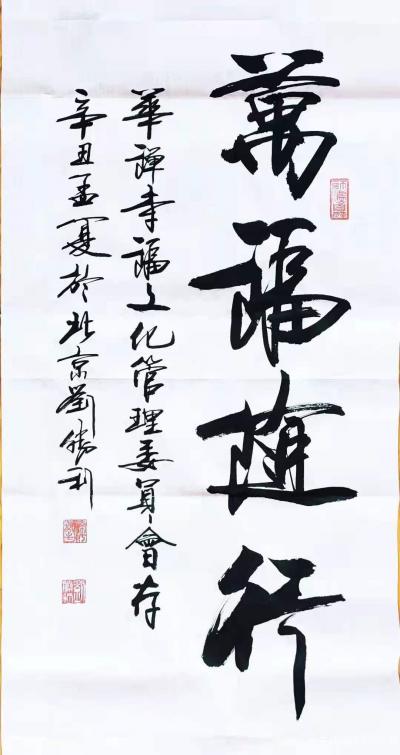 萬福隨行
華禪幸福文化管理委員會存
辛丑孟夏於北京劉勝利